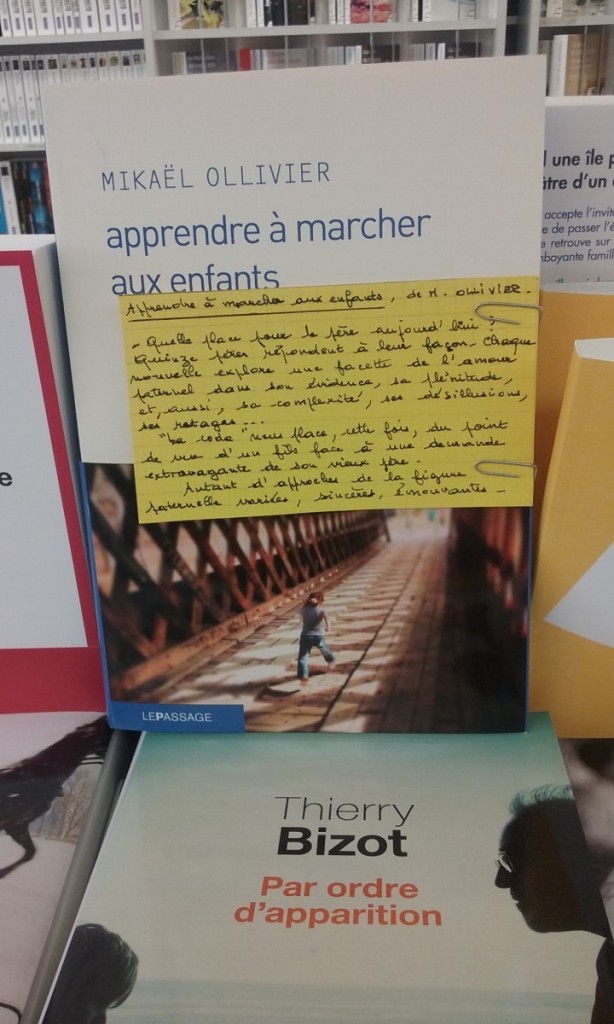 MIKAËL OLLIVIER
apprendre à marcher
aux enfants
Apprendre à marcher aux enfants, de M. OLLIVIER.
- Quelle place pour le père aujourd'hui ?
Quinze pères répondent à leur façon. Chaque
nouvelle explore une facette de l'amour
paternel dans son évidence, sa plénitude,
et, aussi, sa complexité, ses désillusions,
ses ratages...
"Le code" nous place, cette fois, du point
de vue d'un fils face à une demande
extravagante de son vieux père.
Autant d'approches de la figure
paternelle variées, sincères, émouvantes -
LEPASSAGE
Thierry
Bizot
Par ordre
d'apparition
une île
âtre d'un
accepte l'invit
e de passer l'é
e retrouve sur
mboyante famill
e